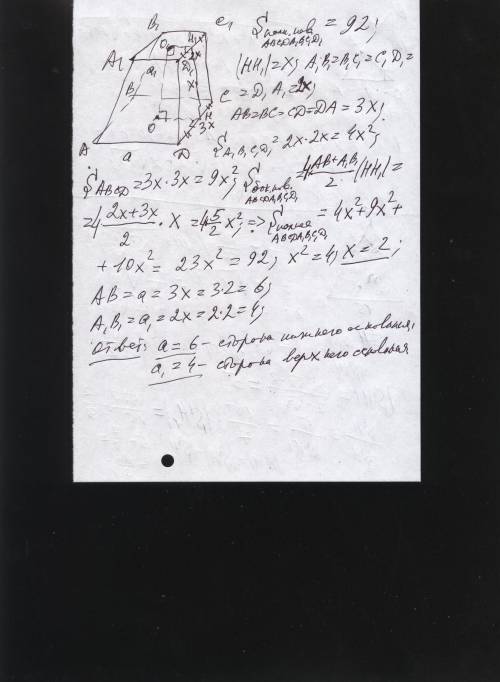 B₁ H₁ C₁
O₁
A₁ a₁ D₁
x 2x
B x C
O H
3x
A a D
S полн.пов. ABCDA₁B₁C₁D₁ = 92;
|HH₁| = x; A₁B₁ = B₁C₁ = C₁D₁ =
= D₁A₁ = 2x;
AB = BC = CD = DA = 3x;
S A₁B₁C₁D₁ = 2x·2x = 4x²;
S ABCD = 3x·3x = 9x²; S бок.пов. ABCDA₁B₁C₁D₁ = 4 (AB + A₁B₁)/2 · |HH₁| =
= 4 (2x+3x)/2 · x = 4 5/2 x²; => S полная ABCDA₁B₁C₁D₁ = 4x² + 9x² +
+ 10x² = 23x² = 92; x² = 4; x = 2;
AB = a = 3x = 3·2 = 6;
A₁B₁ = a₁ = 2x = 2·2 = 4;
Ответ: a = 6 – сторона нижнего основания,
a₁ = 4 – сторона верхнего основания